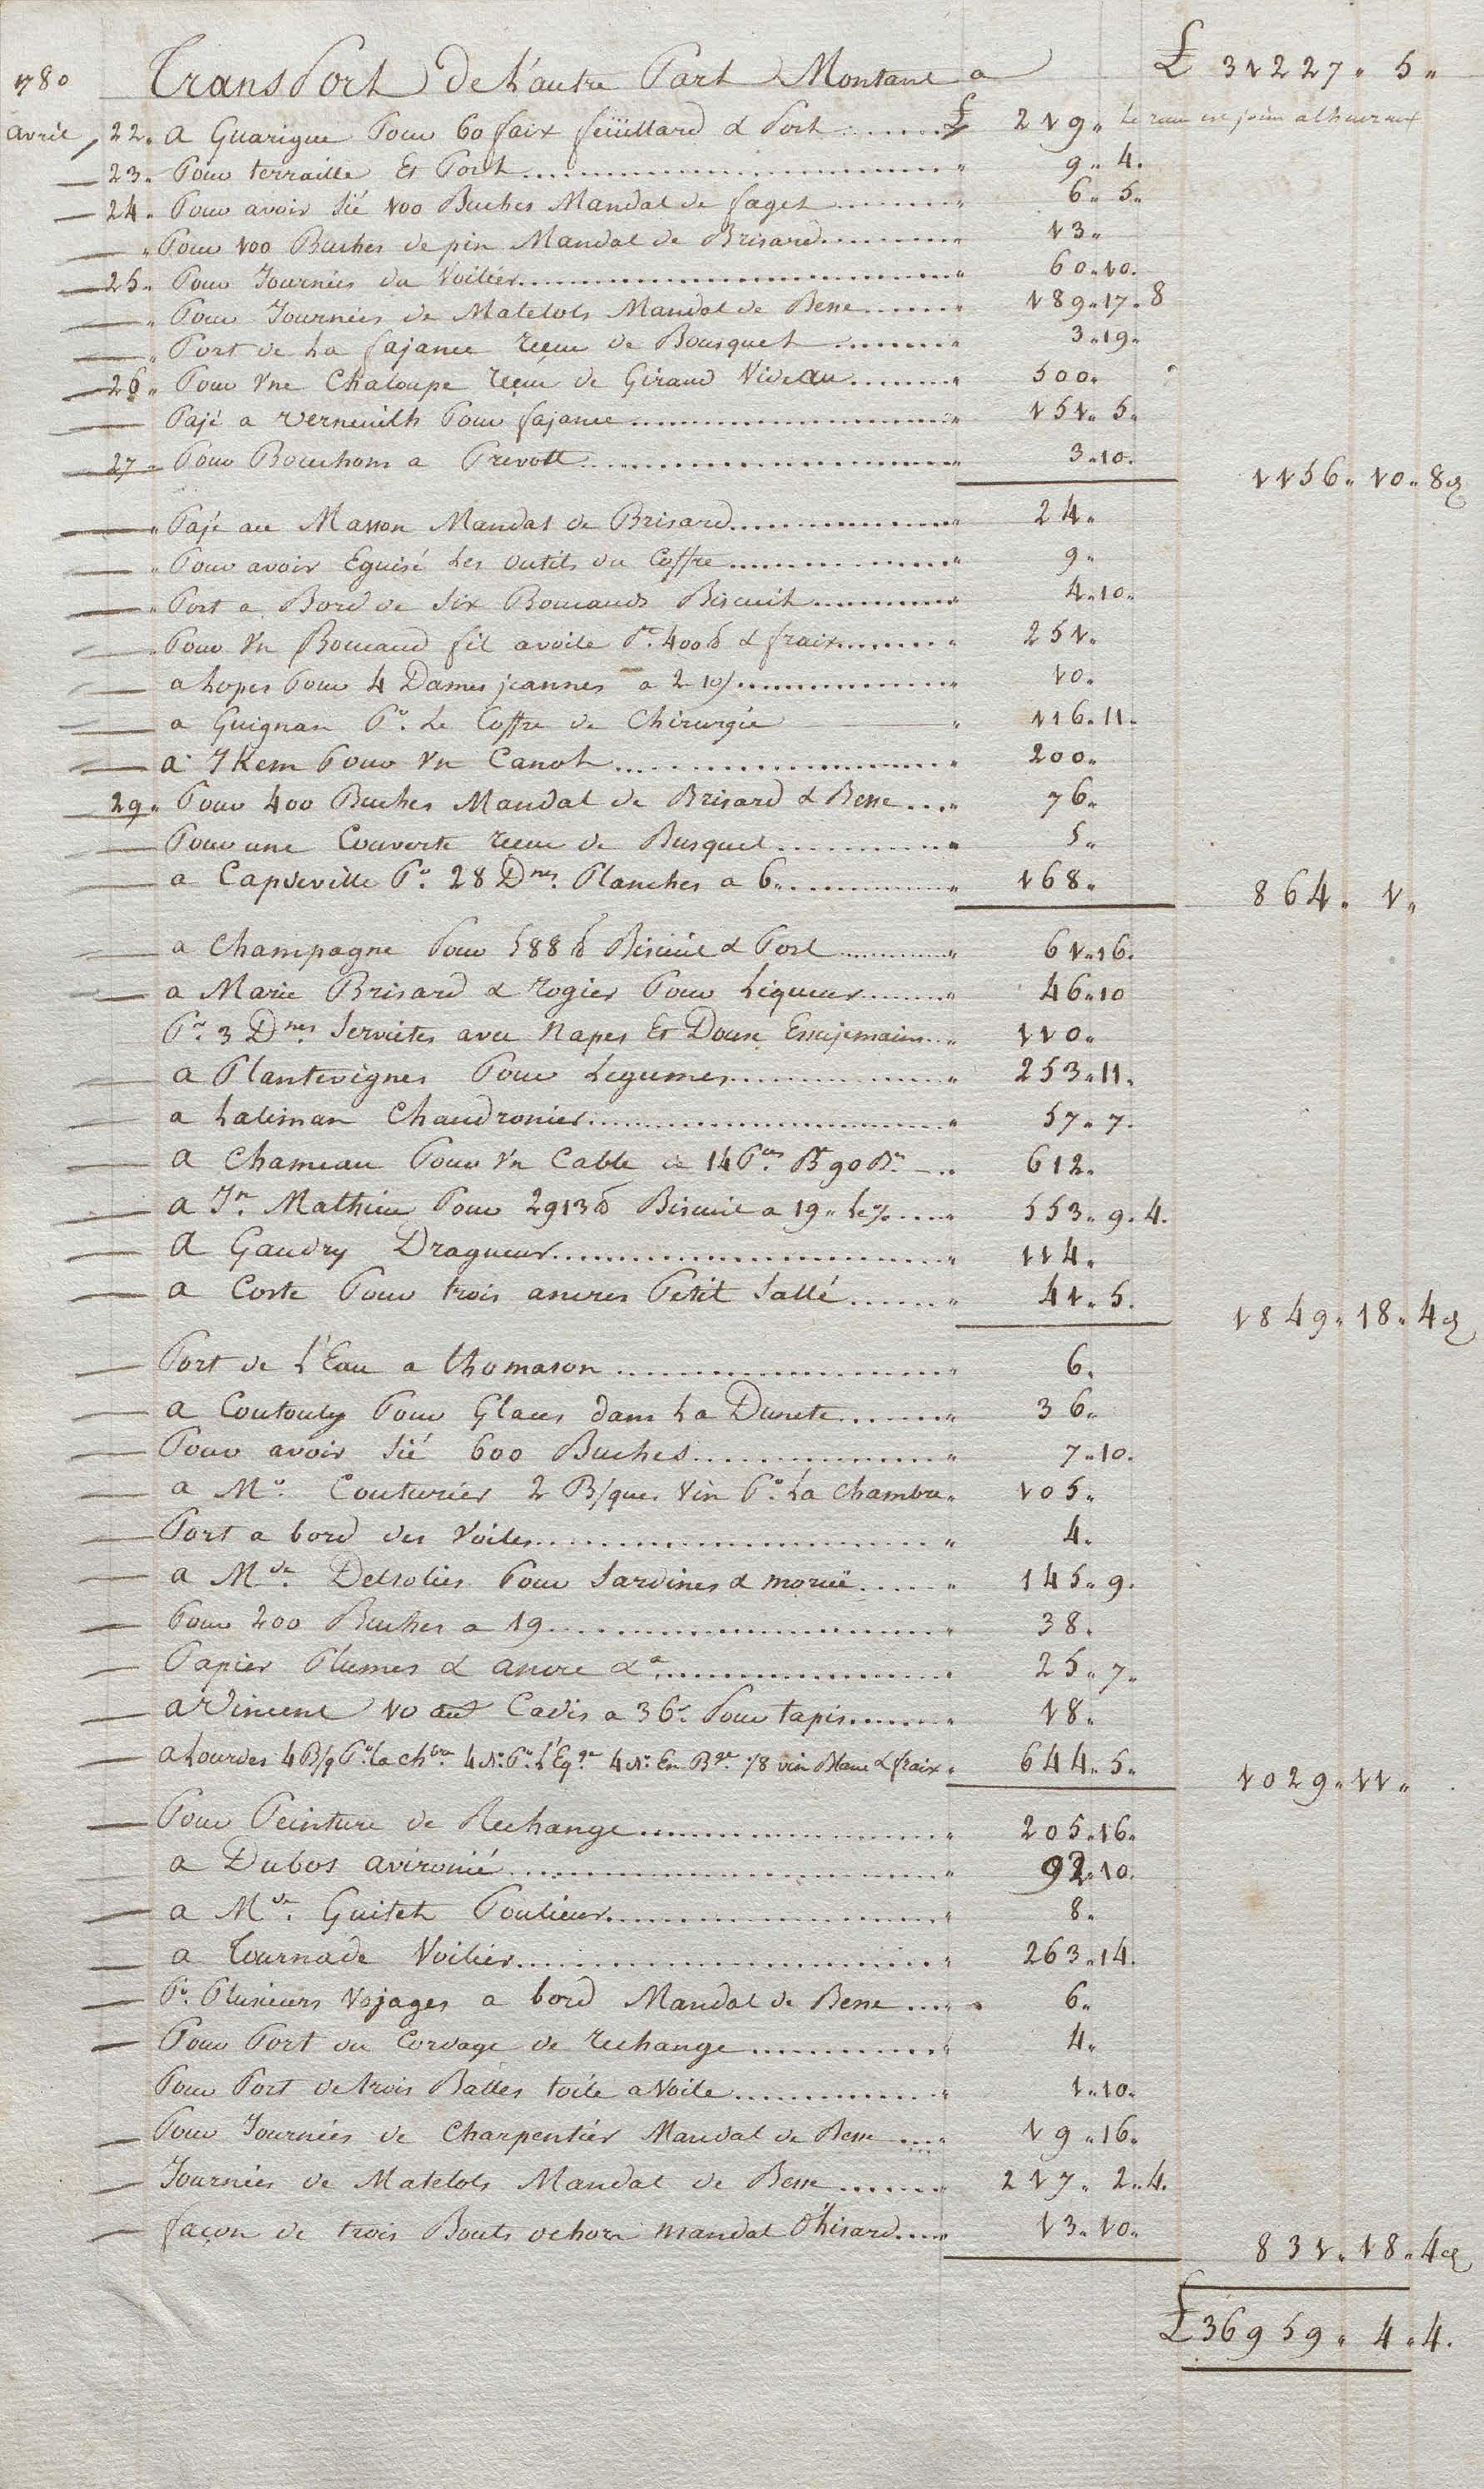 1780 Transport de L'autre Part Montant a £ 31227,, 5,,
avril 22. a Guarigue Pour 60 faix feüillard & Port £ 219,,
23. Pour terraille Et Port 9,, 4.
24. Pour avoir sié 100 Buches Mandat de faget 6,, 5,,
Pour 100 Buches de pin Mandat de Brisard 13,,
25. Pour Journées du Voilier 60,,10.
Pour Journées de Matelots Mandat de Besse 189,,17,,8
Port de La fajance reçue de Bousquet 3,,19,,
26. Pour Vne Chaloupe reçue de Giraud Videau 500,,
Pajé a Verneuilh Pour fajance 151,, 5,,
27. Pour Bouchons a Prevott 3,,10.
1156,, 10,, 8d
Pajé au Masson Mandat de Brisard 24,,
Pour avoir Eguisé Les outils du Coffre 9,,
Port a Bord de Six Boucauds Biscuit 4,,10.
Pour Vn Boucaud fil avoile Pt. 400 lb & fraix 251,,
a Lopes Pour 4 Dames jeannes a 2 10/ 10,,
a Guignan Pr. Le Coffre de Chirurgie 116,,11.
a Ikem Pour Vn Canot 200,,
29. Pour 400 Buches Mandat de Brisard & Besse 76,,
Pour une Couverte reçue de Busquet 5,,
a Capdeville Pr. 28 Dnes. Planches a 6,, 168,,
864,, 1,,
a Champagne Pour 588 lb Biscuit & Port 61,,16.
a Marie Brisard & Rogier Pour Liqueur 46,,10
Pr. 3 Dnes. Serviètes avec Napes Et Douse Essujemains 110,,
a Plantevignes Pour Legumes 253,,11,,
a Laliman Chaudronier 57,, 7.
a Chameau Pour Vn Cable de 14 Pces 612,,
a Jn. Mathieu Pour 2913 lb Biscuit a 19,, Le % 553,, 9,,4.
a Gaudry Dragueur 114,,
a Coste Pour trois ancres Petit Sallé 41,, 5.
1849,, 18,, 4d
Port de L'Eau a thomason 6,,
a Coutouly Pour Glaces dans La Dunete 36,,
Pour avoir Sié 600 Buches 7,,10.
a Mr. Couturier 2 B/ques Vin Pr. La Chambre 105,,
Port a bord des Voiles 4,,
a Mde. Delsolies Pour Sardines & moruë 145,, 9.
Pour 200 Buches a 19 38,,
Papier Plumes & ancre &a 25,, 7,,
a Vincent 10 aun Cadis a 36s. Pour tapis 18,,
a Lourdes 4 B/q Pr. La chbre 4 do. Pr. L'Eqge 4 do. En Bque. 1/8 vin Blanc & fraix 644,, 5,,
1029,, 11,,
Pour Peinture de Rechange 205,,16,,
a Dubos avironié 92,,10.
a Mde. Guiteh Poulieur 8,,
a Tournade Voilier 263,,14.
Pr. Plusieurs Vojages a bord Mandat de Besse 6,,
Pour Port du Cordage de rechange 4,,
Pour Port de trois Balles toile a Voile 1,,10,,
Pour Journées de Charpentier Mandat de Besse 19,,16,,
Journées de Matelots Mandat de Besse 217,, 2,,4.
façon de trois Bouts dehors mandat 13,,10,,
831,, 18,, 4d
£ 36959,, 4,,4.